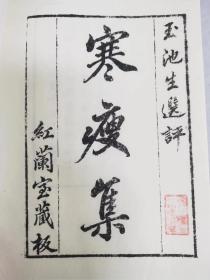 玉池生選評
寒瘦集
紅蘭室藏板